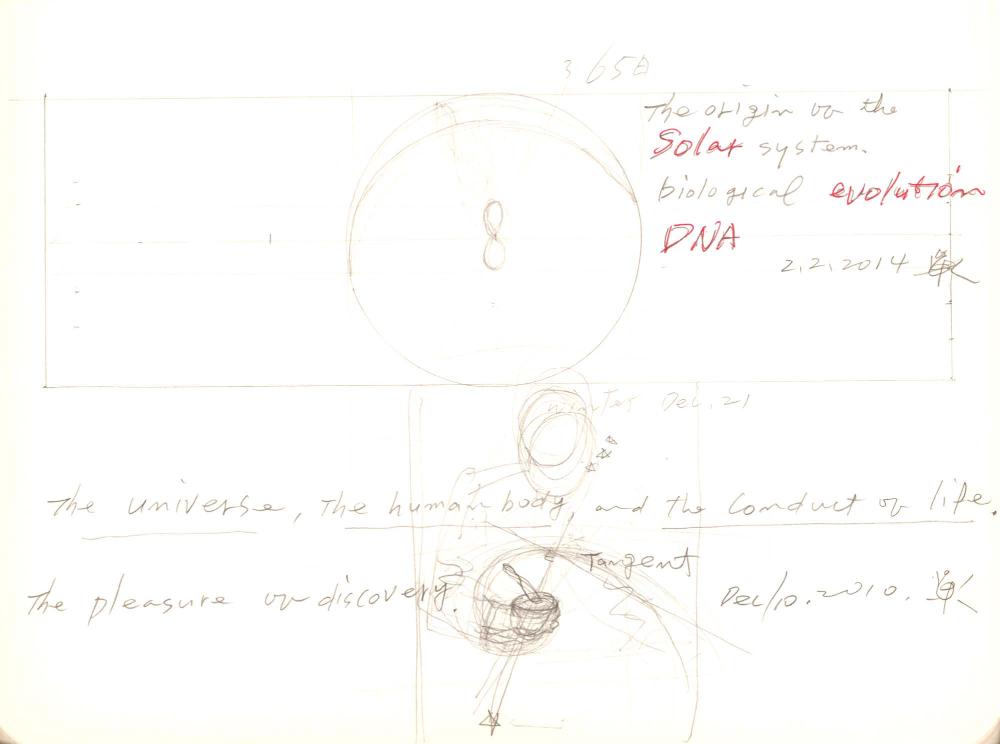 365日
The origin of the
Solar system.
biological evolution
DNA
2.2.2014
winter Dec. 21
The universe, The human body, and the conduct of life.
Tangent
The pleasure of discovery.
Dec/10.2010.